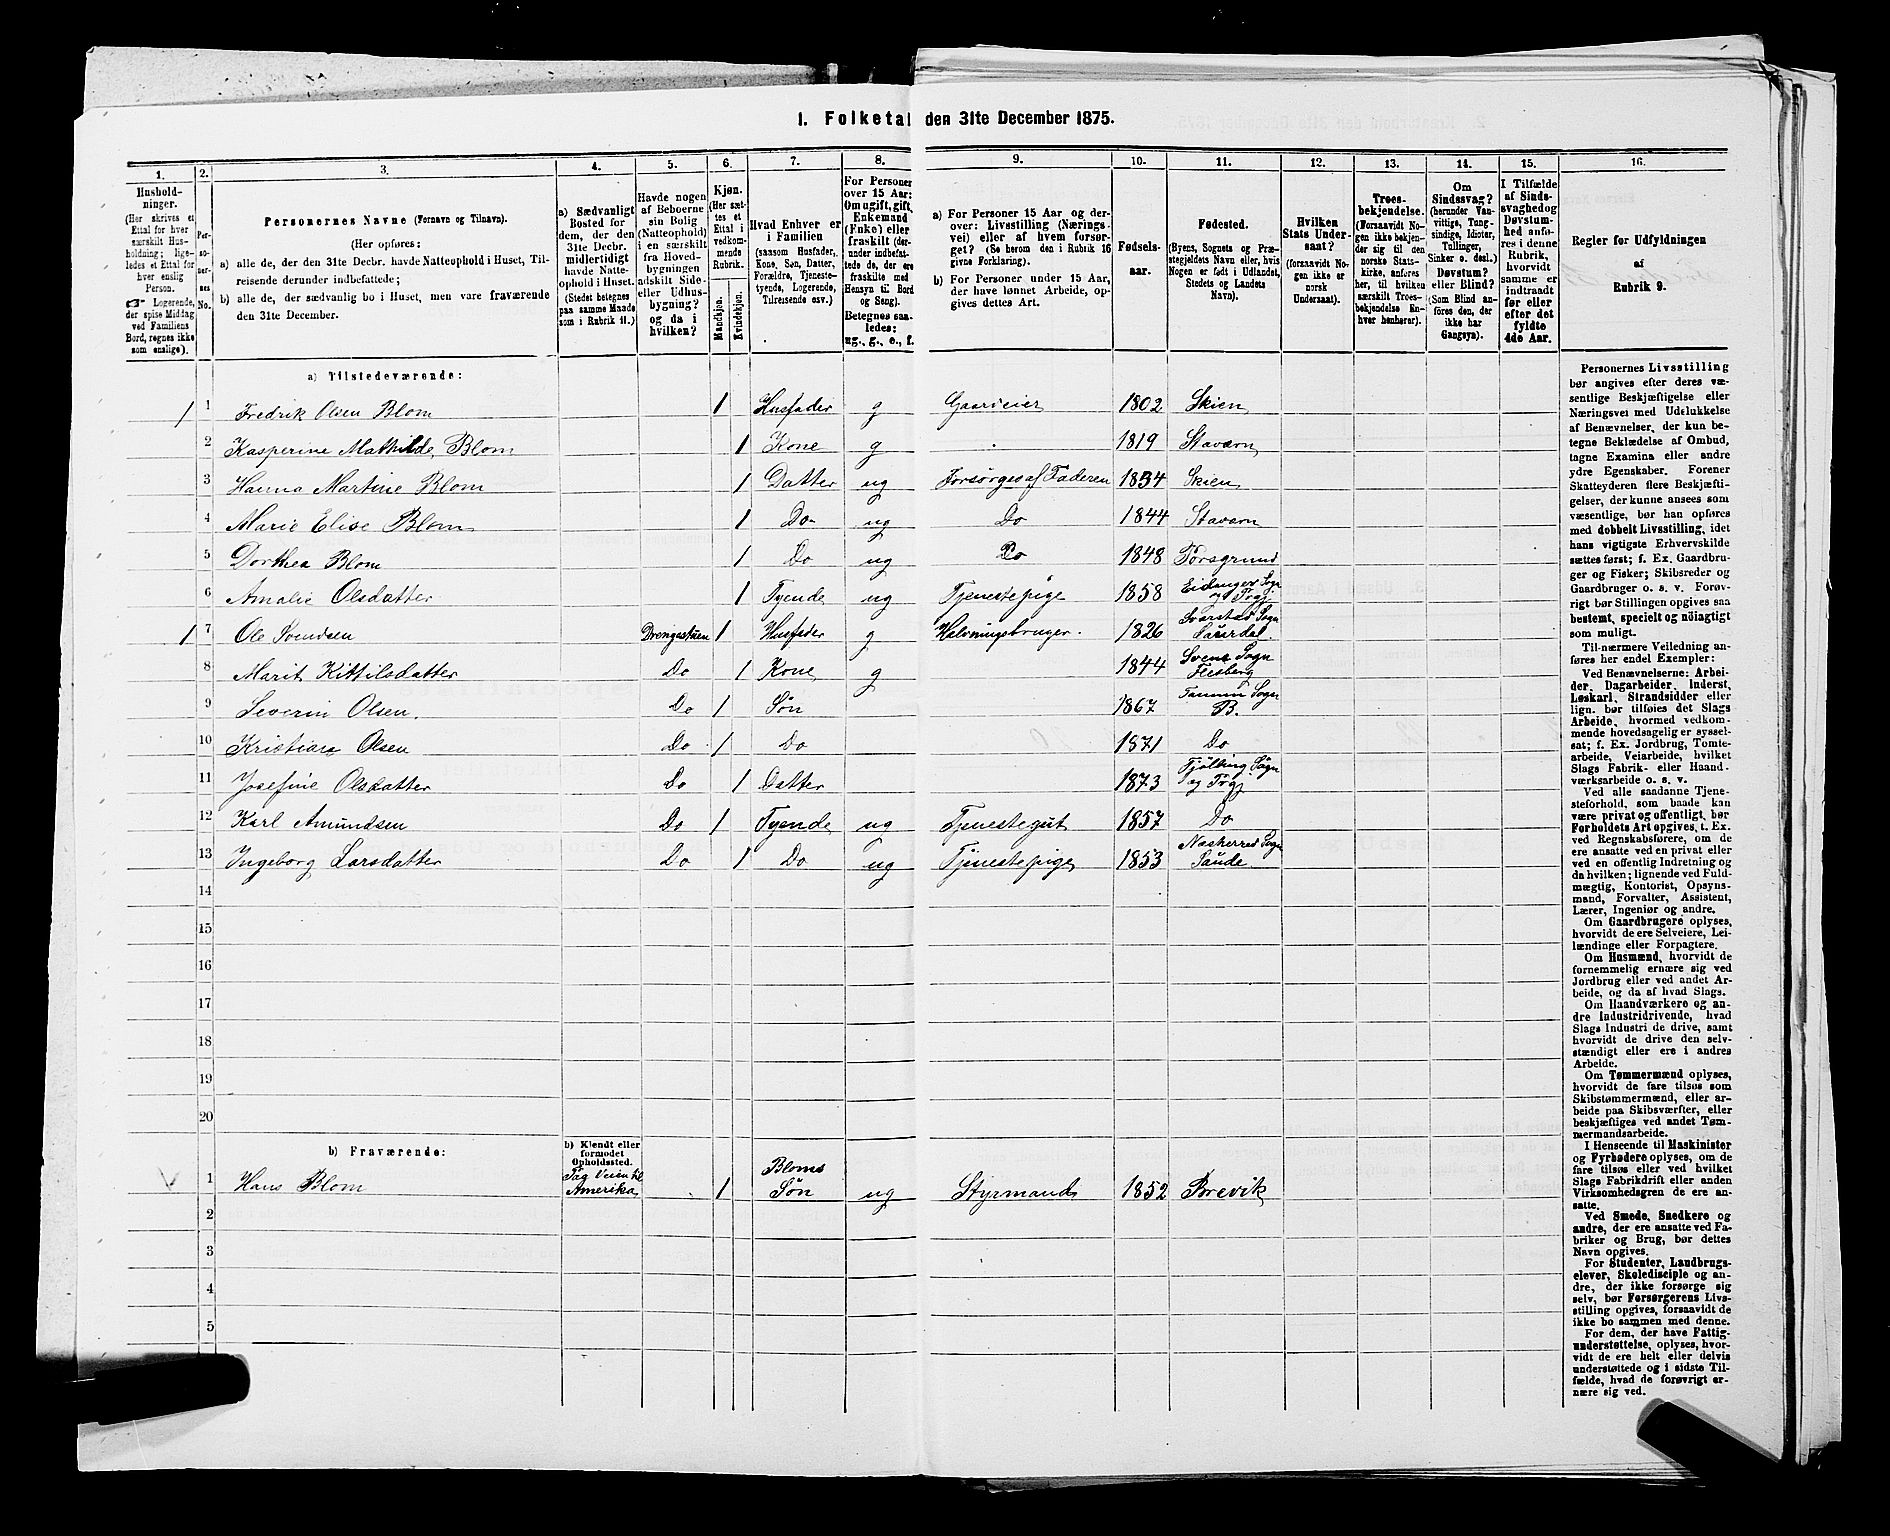 1. Folketal den 31te December 1875.
1. 2. 3. 4. 5. 6. 7. 8. 9. 10. 11. 12. 13. 14. 15. 16.
Hushold-
ninger.
(Her skrives et
Ettal for hver
særskilt Hus-
holdning; lige-
ledes et Ettal for
hver enslig
Person.
Logerende,
der spise Middag
ved Familiens
Bord, regnes ikke
som enslige).
Per-
so-
ner-
nes
No.
Personernes Navne (Fornavn og Tilnavn).
(Her opføres:
a) alle de, der den 31te Decbr. havde Natteophold i Huset, Til-
reisende derunder indbefattede;
b) alle de, der sædvanlig bo i Huset, men vare fraværende
den 31te December.
a) Sædvanligt
Bosted for
dem, der den
31te Decbr.
midlertidigt
havde Natte-
ophold i Huset.
(Stedet betegnes
paa samme Maade
som i Rubrik 11.)
Havde nogen
af Beboerne
sin Bolig
(Natteophold)
i en særskilt
fra Hoved-
bygningen
adskilt Side-
eller Udhus-
bygning?
og da i
hvilken?
Kjøn.
(Her sæt-
tes et
Ettal i
vedkom-
mende
Rubrik.
Mandkjøn.
Kvindekjøn.
Hvad Enhver er
i Familien
(saasom Husfader,
Kone, Søn, Datter,
Forældre, Tjeneste-
tyende, Logerende,
Tilreisende osv.)
For Personer
over 15 Aar:
Om ugift, gift,
Enkemand
(Enke) eller
fraskilt (der-
under indbefat-
tede de, der ere
fraskilte med
Hensyn til Bord
og Seng).
Betegnes saa-
ledes:
ug., g., e., f.
a) For Personer 15 Aar og der-
over: Livsstilling (Nærings-
vei) eller af hvem forsør-
get? (Se herom den i Rubrik 16
givne Forklaring).
b) For Personer under 15 Aar,
der have lønnet Arbeide, op-
gives dettes Art.
Fødsels-
aar.
Fødested.
(Byens, Sognets og Præ-
stegjeldets Navn, eller, hvis
Nogen er født i Udlandet,
Stedets og Landets
Navn).
Hvilken
Stats Under-
saat?
(forsaavidt No-
gen ikke er
norsk
Undersaat).
Troes-
bekjendelse.
(Forsaavidt No-
gen ikke bekjen-
der sig til den
norske Stats-
kirke, anføres
her, til hvilken
særskilt Troes-
bekjendelse En-
hver henhører).
Om
Sindssvag?
(herunder Van-
vittige, Tung-
sindige, Idioter,
Tullinger,
Sinker o. desl.)
Døvstum?
eller Blind?
(Som Blind an-
føres den, der
ikke har
Gangsyn).
I Tilfælde
af Sinds-
svaghed og
Døvstum-
hed anfø-
res i denne
Rubrik,
hvorvidt
samme er
indtraadt
før eller
efter det
fyldte
4de Aar.
Regler for Udfyldningen
af
Rubrik 9.
a) Tilstedeværende:
1 1 Fredrik Olsen Blom 1 Husfader g Gaardeier 1802 Skien
2 Kasperine Mathilde Blom 1 Kone g 1819 Stavern
3 Hanna Martine Blom 1 Datter ug Forsørges af Faderen 1834 Skien
4 Marie Elise Blom 1 Do ug Do 1844 Stavern
5 Dorthea Blom 1 Do ug Do 1848 Porsgrund
6 Amalie Olsdatter 1 Tyende ug Tjenestepige 1858 Eidanger Sogn
og Prgj.
1 7 Ole Svendsen Drengestuen 1 Husfader g Halvningsbruger. 1826 Svarstad Sogn
Laurdal
8 Marit Kittilsdatter Do 1 Kone g 1844 Svene Sogn
Flesberg
9 Severin Olsen. Do 1 Søn 1867 Tanum Sogn
B.
10 Kristian Olsen Do 1 Do 1871 Do
11 Josefine Olsdatter Do 1 Datter 1873 Fjølling Sogn
og Prgj
12 Karl Amundsen Do 1 Tyende ug Tjenestegut 1857 Do
13 Ingeborg Larsdatter Do 1 Do ug Tjenestepige 1853 Nesherred Sogn
Saude
14
15
16
17
18
19
20
b) Fraværende:
b) Kjendt eller
formodet
Opholdssted.
1 Hans Blom Paa Veien til
Amerika 1 Bloms
Søn ug Styrmand 1852 Brevik
2
3
4
5
Personernes Livsstilling
bør angives efter deres væ-
sentlige Beskjæftigelse eller
Næringsvei med Udelukkelse
af Benævnelser, der kun be-
tegne Beklædelse af Ombud,
tagne Examina eller andre
ydre Egenskaber. Forener
Skatteyderen flere Beskjæfti-
gelser, der kunne ansees som
væsentlige, bør han opføres
med dobbelt Livsstilling, idet
hans vigtigste Erhvervskilde
sættes først; f. Ex. Gaardbru-
ger og Fisker; Skibsreder og
Gaardbruger o. s. v. Forøv-
rigt bør Stillingen opgives saa
bestemt, specielt og nøiagtigt
som muligt.
Til-nærmere Veiledning an-
føres her endel Exempler:
Ved Benævnelserne: Arbei-
der, Dagarbeider, Inderst,
Løskarl, Strandsidder eller
lign. bør tilføies det Slags
Arbeide, hvormed vedkom-
mende hovedsagelig er syssel-
sat; f. Ex. Jordbrug, Tomte-
arbeide, Veiarbeide, hvilket
Slags Fabrik- eller Haand-
værksarbeide o. s. v.
Ved alle saadanne Tjene-
steforhold, som baade kan
være privat og offentligt, bør
Forholdets Art opgives, t. Ex.
ved Regnskabsførere, om de
ere ansatte ved en privat eller
ved en offentlig Indretning og
da hvilken; lignende ved Fuld-
mægtig, Kontorist, Opsyns-
mand, Forvalter, Assistent,
Lærer, Ingeniør og andre.
Om Gaardbrugere oplyses,
hvorvidt de ere Selveiere, Lei-
lændinge eller Forpagtere.
Om Husmænd, hvorvidt de
fornemmelig ernære sig ved
Jordbrug eller ved andet Ar-
beide, og da af hvad Slags.
Om Haandværkere og an-
dre Industridrivende, hvad
Slags Industri de drive, samt
hvorvidt de drive den selv-
stændigt eller ere i andres
Arbeide.
Om Tømmermænd oplyses,
hvorvidt de fare tilsøs som
Skibstømmermænd, eller ar-
beide paa Skibsværfter, eller
beskjæftiges ved andet Tøm-
mermandsarbeide.
I Henseende til Maskinister
og Fyrbødere oplyses, om de
fare tilsøs eller ved hvilket
Slags Fabrikdrift eller anden
Virksomhedsgren de ere an-
satte.
Ved Smede, Snedkere og
andre, der ere ansatte ved Fa-
briker og Brug, bør dettes
Navn opgives.
For Studenter, Landbrugs-
elever, Skoledisciple og an-
dre, der ikke forsørge sig
selv, bør Forsørgerens Livs-
stilling opgives, forsaavidt de
ikke bo sammen med denne.
For dem, der have Fattig-
understøttelse, oplyses, hvor-
vidt de ere helt eller delvis
understøttede og i sidste Til-
fælde, hvad de forøvrigt er-
nære sig ved.